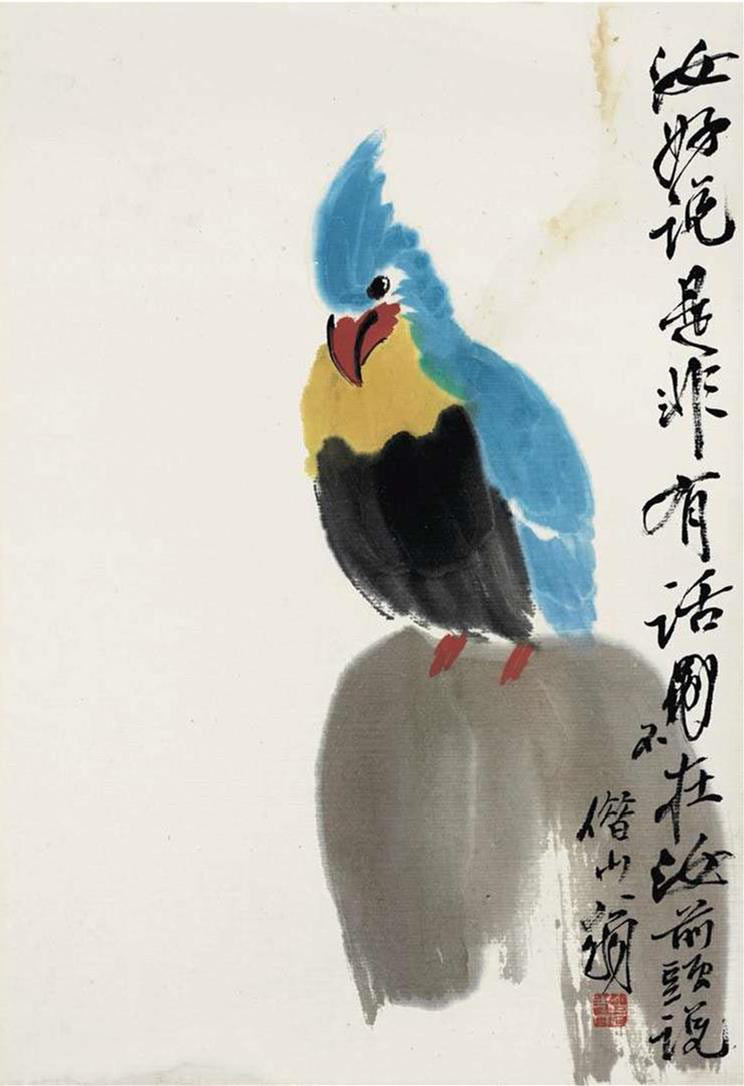 汝好說是非有話不在汝前頭說
借山翁